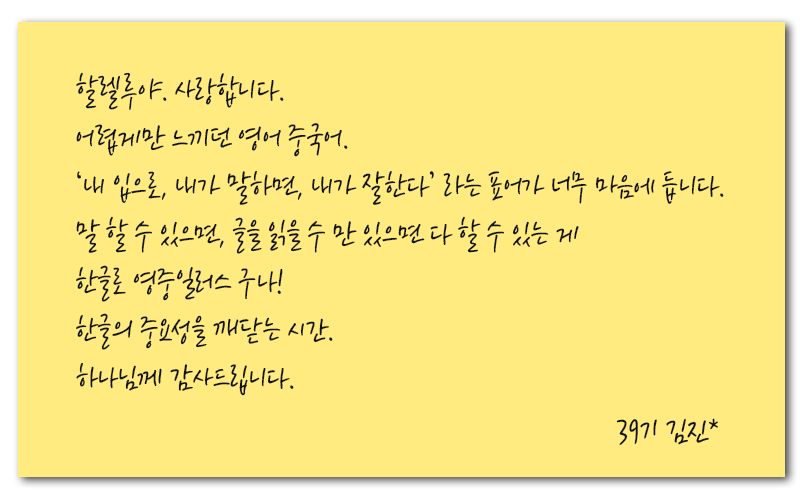 할렐루야. 사랑합니다.
어렵게만 느끼던 영어 중국어.
‘내 입으로, 내가 말하면, 내가 잘한다’ 라는 표어가 너무 마음에 듭니다.
말 할 수 있으면, 글을 읽을 수 만 있으면 다 할 수 있는 게
한글로 영중일러스 구나!
한글의 중요성을 깨닫는 시간.
하나님께 감사드립니다.
39기 김진*